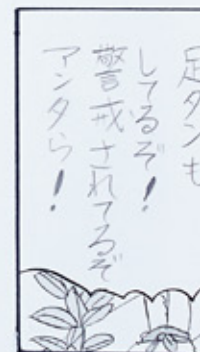 足タンも
してるぞ！
警戒されてるぞ
アンタら！